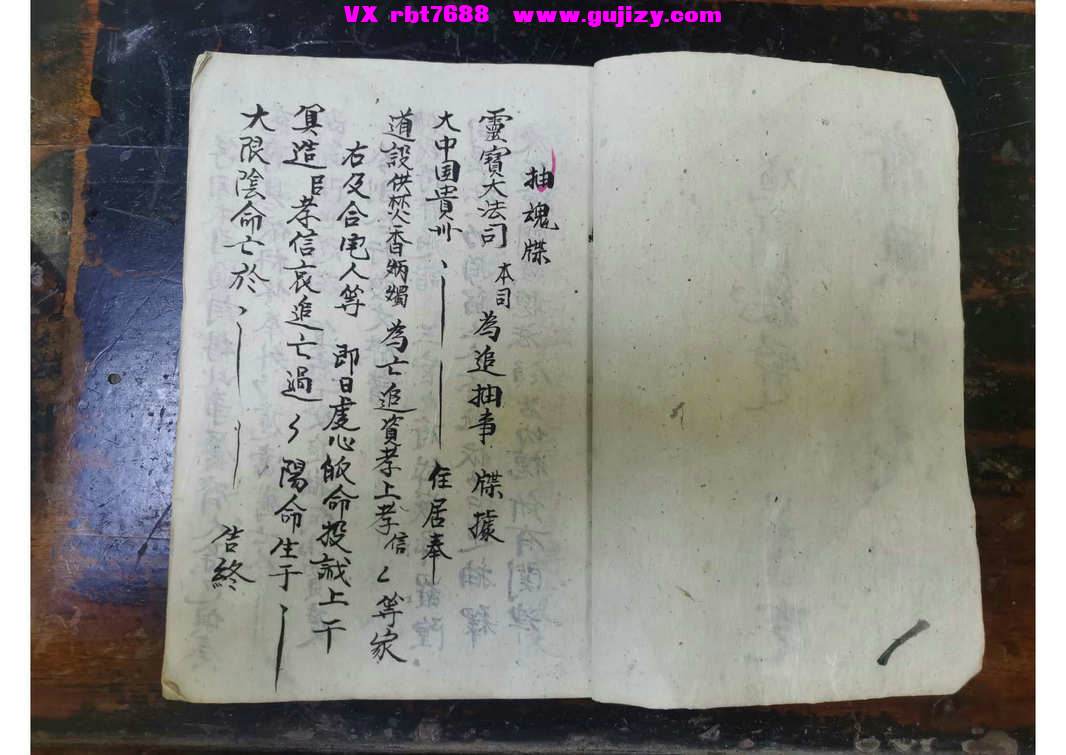 VX rbt7688 www.gujizy.com
抽魂牒
靈寶大法司 本司 為追抽事 牒據
大中国貴州 住居奉
道設供焚香炳燭 為亡追資孝上孝信 等家
右及合宅人等 即日虔心皈命投誠上干
冥造 臣孝信哀追亡過 陽命生于
大限陰命亡於 告終